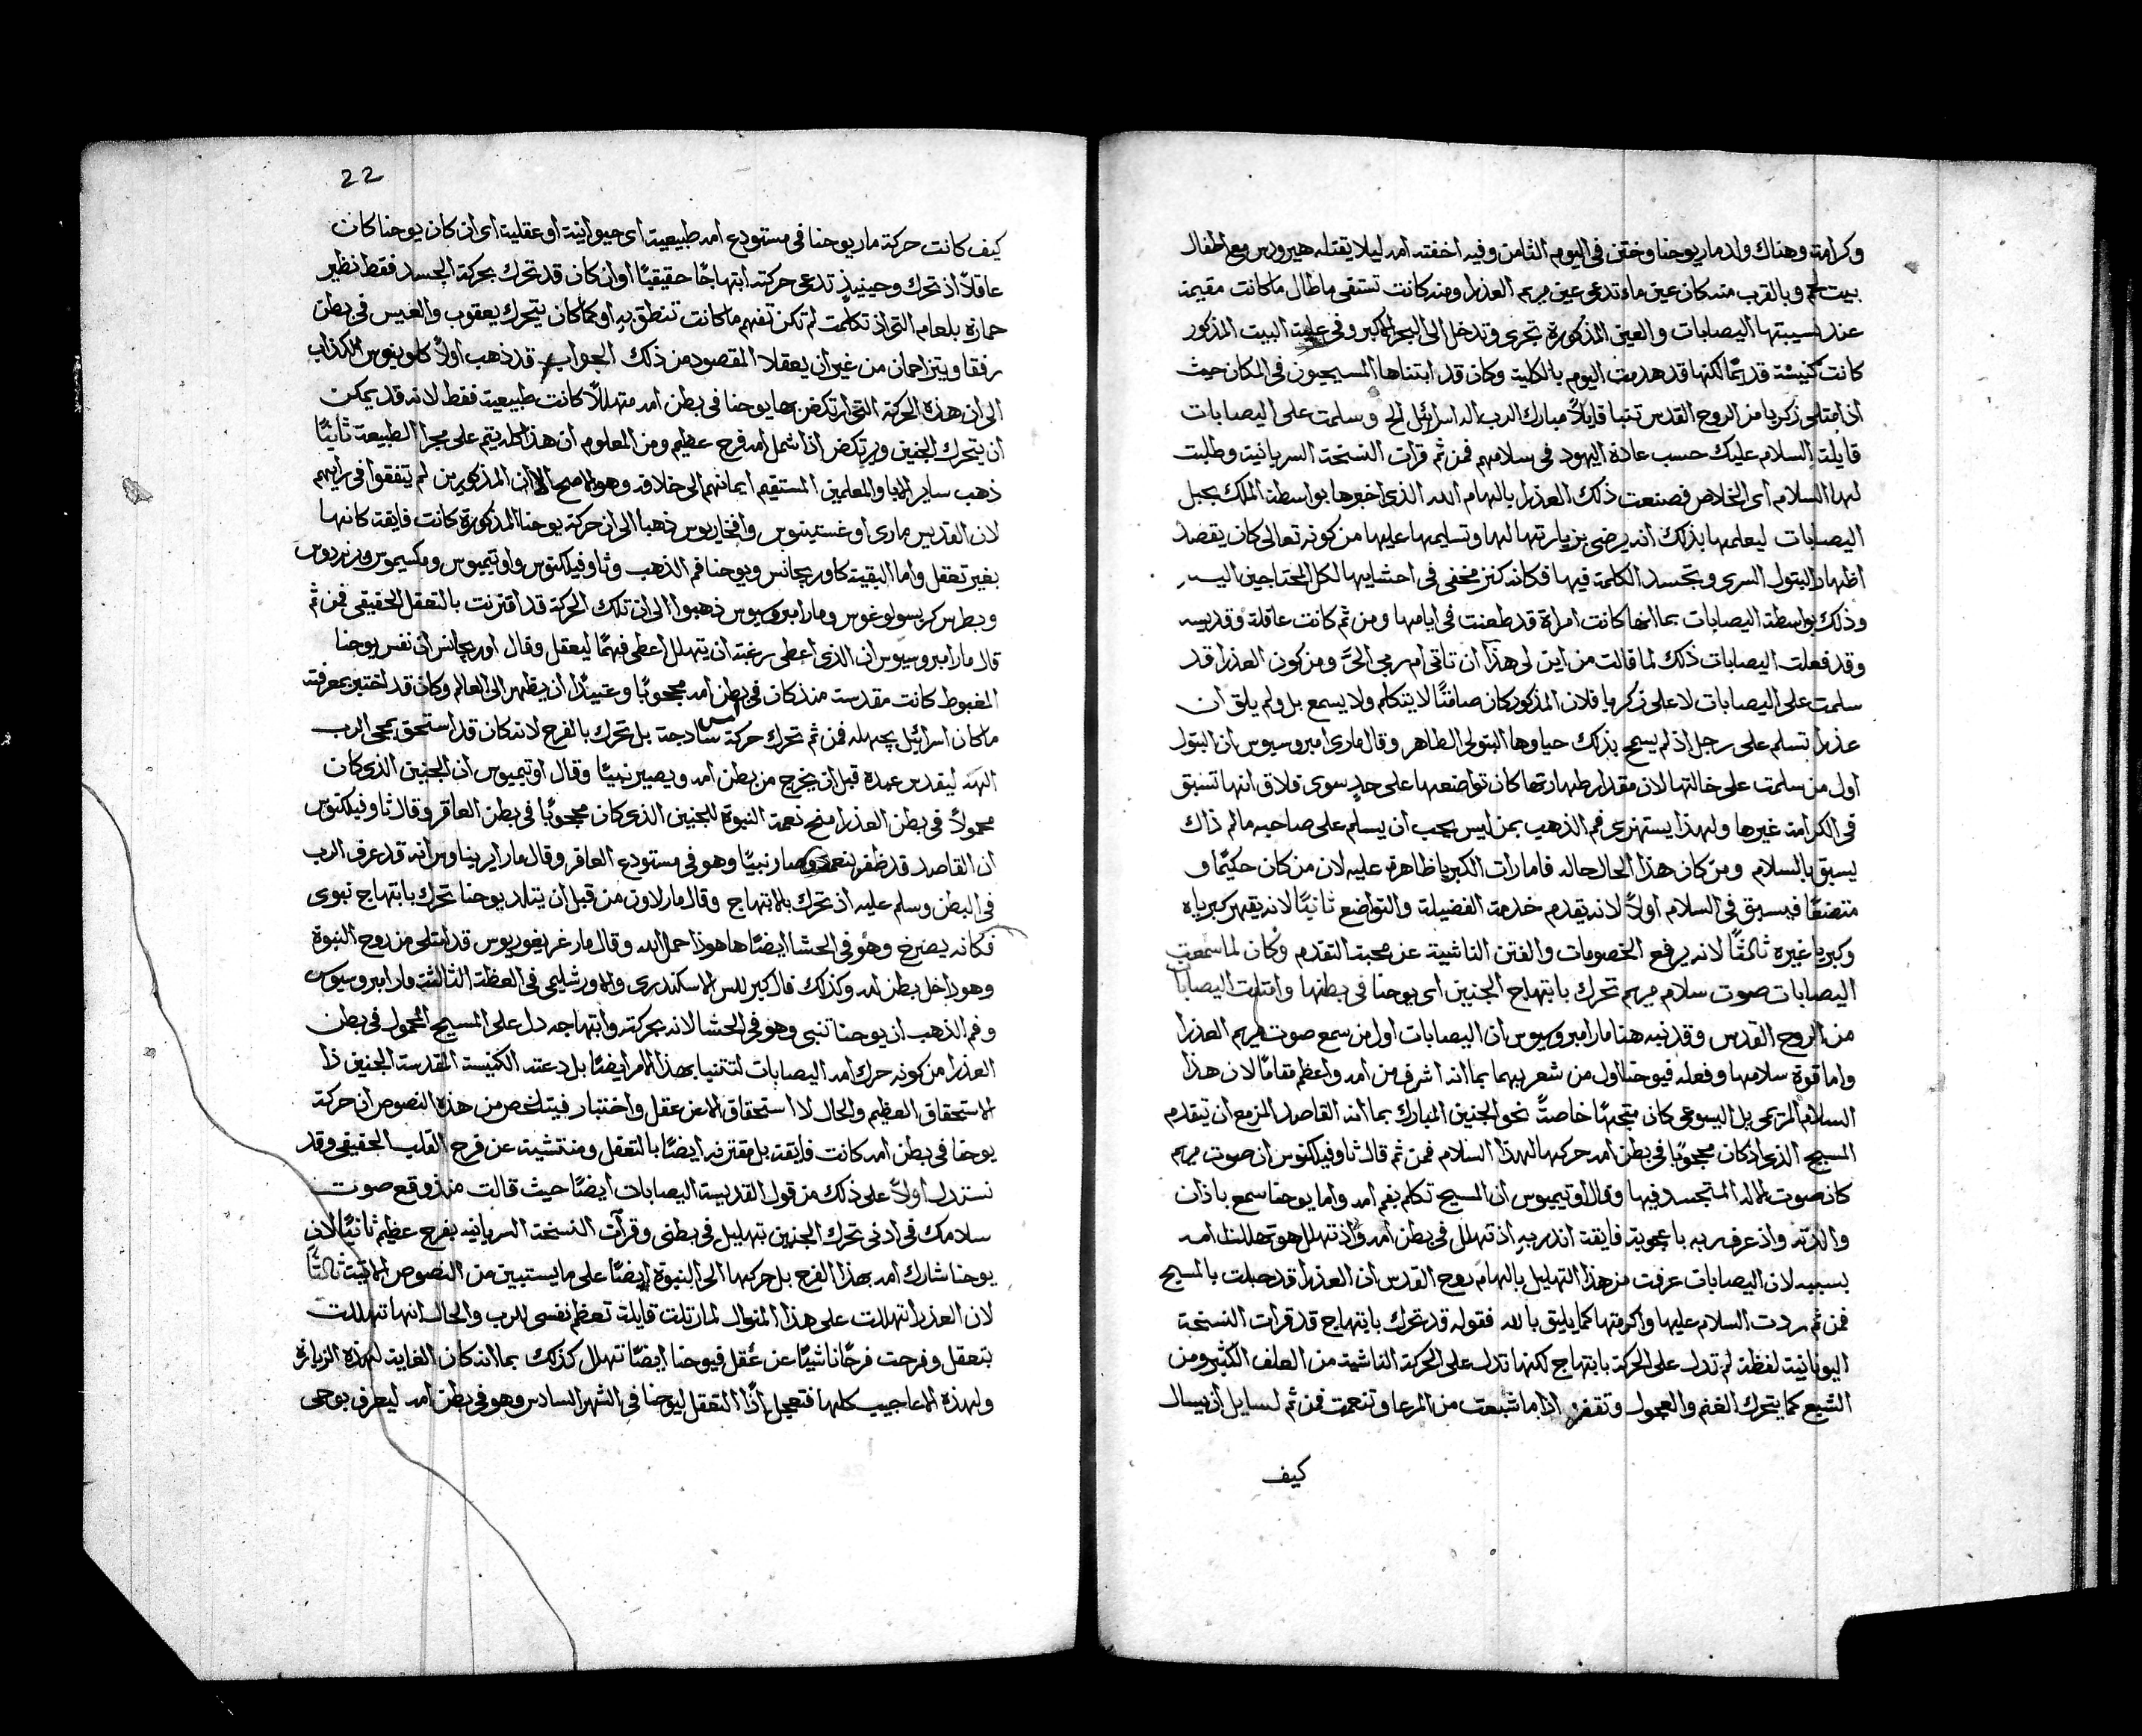 وكرامة وهناك ولد ماريوحنا وختن فى اليوم الثامن وفيه اخفته امه ليلا يقتله هيرودس مع اطفال
بيت لحم وبالقرب منه كان عين ماء تدعى عين مريم العذرا ومنه كانت تستقى ماطال ما كانت مقيمة
عند نسيبتها اليصابات والعين المذكورة تجرى وتدخل الى البحر الاكبر وفى علية البيت المذكور
كانت كنيسة قديمًا لكنها قد هدمت اليوم بالكلية وكان قد ابتناها المسيحيون فى المكان حيث
اذ امتلى زكريا من الروح القدس تنبا قايلاً مبارك الرب اله اسرائيل الخ وسلمت على اليصابات
قايلة السلام عليك حسب عادة اليهود فى سلامهم فمن ثم قرات النسخة السريانية وطلبت
لها السلام اى الخلاص فصنعت ذلك العذرا بالهام الله الذى اخبرها بواسطة الملك بحبل
اليصابات ليعلمها بذلك انه يرضى بزيارتها لها وتسليمها عليها من كونه تعالى كان يقصد
اظهار البتول السرى وتجسد الكلمة فيها فكانه كنز مخفى فى احشايها لكل المحتاجين اليه
وذلك بواسطة اليصابات بما انها كانت امراة قد طعنت فى ايامها ومن ثم كانت عاقلة وقديسه
وقد فعلت اليصابات ذلك لما قالت من اين لى هذا ان تاتى ام ربى الىَّ ومن كون العذرا قد
سلمت على اليصابات لا على زكريا فلان المذكور كان صامتًا لا يتكلم ولا يسمع بل ولم يلق ان
عذرا تسلم على رجل اذ لم يسمح بذلك حياوها البتولى الطاهر وقال مارى امبروسيوس ان البتول
اول من سلمت على خالتها لان مقدار طهارتها كان تواضعها على حدٍ سوى فلاق انها تسبق
فى الكرامة غيرها ولهذا يستهزى فم الذهب بمن ليس يحب ان يسلم على صاحبه مالم ذاك
يسبق بالسلام ومن كان هذا الحال حاله فامارات الكبريا ظاهرة عليه لان من كان حكيمًا و
متضعًا فيسبق فى السلام اولاً لانه يقدم خدمة الفضيلة والتواضع ثانيًا لانه يقهر كبرياه
وكبريا غيره ثالثًا لانه يرفع الخصومات والفتن الناشية عن محبة التقدم وكان لما سمعت
اليصابات صوت سلام مريم تحرك بابتهاج الجنين اى يوحنا فى بطنها وامتلت اليصابات
من الروح القدس وقد نبه هنا مار امبروسيوس ان اليصابات اول من سمع صوت مريم العذرا
واما قوة سلامها وفعله فيوحنا اول من شعر بهما بما انه اشرف من امه واعظم مقامًا لان هذا
السلام المريمى بل اليسوعى كان متجهًا خاصةً نحو الجنين المبارك بما انه القاصد المزمع ان يتقدم
المسيح الذى اذ كان محجوبًا فى بطن امه حركها لهذا السلام فمن ثم قال ثاوفيلكتوس ان صوت مريم
كان صوت الاله المتجسد فيها وقال اوتيميوس ان المسيح تكلم بفم امه واما يوحنا سمع باذان
والدته واذ عرف ربه باعجوبة فايقة انذر به اذ تهلل فى بطن امه واذ تهلل هو تهللت امه
بسببه لان اليصابات عرفت من هذا التهليل بالهام روح القدس ان العذرا قد حبلت بالمسيح
فمن ثم ردت السلام عليها واكرمتها كما يليق بالله فقوله قد تحرك بابتهاج قد قرات النسخة
اليونانية لفظة لم تدل على الحركة بابتهاج لكنها تدل على الحركة الناشية من العلف الكثير ومن
الشبع كما يتحرك الغنم والعجول وتقفز اذا ما شبعت من المرعا وتنعمت فمن ثم لسايل ان يسال
كيف
22
كيف كانت حركة ماريوحنا فى مستودع امه طبيعية اى حيوانية او عقلية اى ان كان يوحنا كان
عاقلاً اذ تحرك وحينيذٍ تدعى حركته ابتهاجًا حقيقيًا او ان كان قد تحرك بحركة الجسد فقط نظير
حمارة بلعام التى اذ تكلمت لم تكن تفهم ما كانت تنطق به او كما كان يتحرك يعقوب والعيس فى بطن
رفقا ويتزاحمان من غير ان يعقلا المقصود من ذلك الجواب قد ذهب اولاً كلوينوس الكذاب
الى ان هذه الحركة التى ارتكض بها يوحنا فى بطن امه متهللاً كانت طبيعية فقط لانه قد يمكن
ان يتحرك الجنين ويرتكض اذا شمل امه فرح عظيم ومن المعلوم ان هذا كله يتم على مجرا الطبيعة ثانيًا
ذهب ساير الابا والمعلمين المستقيم ايمانهم الى خلافه وهو الاصح الا ان المذكورين لم يتفقوا فى رايهم
لان القديس مارى اوغستينوس وافخاريوس ذهبا الى ان حركة يوحنا المذكورة كانت فايقة كانها
بغير تعقل واما البقية كاوريجانس ويوحنا فم الذهب وثاوفيلكتوس واوتيميوس ومكسيموس وبرنردوس
وبطرس كريسولوغوس ومار امبروسيوس ذهبوا الى ان تلك الحركة قد اقترنت بالتعقل الحقيقى فمن ثم
قال مار امبروسيوس ان الذى اعطى رغبة ان يتهلل اعطى فهمًا ليعقل وقال اوريجانس ان نفس يوحنا
المغبوط كانت مقدسة منذ كان فى بطن امه محجوبًا وعتيدًا ان يظهر الى العالم وكان قد اختبر بمعرفته
ما كان اسرائيل يجهله فمن ثم تحرك حركة ليس ساذجة بل تحرك بالفرح لانه كان قد استحق بمجى الرب
الهه ليقدس عبده قبل ان يخرج من بطن امه ويصير نبيًا وقال اوتيميوس ان الجنين الذى كان
محمولاً فى بطن العذرا منح نعمة النبوة للجنين الذى كان محجوبًا فى بطن العاقر وقال ثاوفيلكتوس
ان القاصد قد ظفر بنعمة وصار نبيًا وهو فى مستودع العاقر وقال مار ايريناوس انه قد عرف الرب
فى البطن وسلم عليه اذ تحرك بالابتهاج وقال مار لاون من قبل ان يتلد يوحنا تحرك بابتهاج نبوى
فكانه يصرخ وهو فى الحشا ايضًا ها هوذا حمل الله وقال مار غريغوريوس قد امتلى من روح النبوة
وهو داخل بطن امه وكذلك قال كيرللس الاسكندرى والاورشليمى فى العظة الثالثة ومار امبروسيوس
وفم الذهب ان يوحنا تنبى وهو فى الحشا لانه بحركته وابتهاجه دل على المسيح المحمول فى بطن
العذرا من كونه حرك امه اليصابات لتتنبا بهذا الامر ايضًا بل دعته الكنيسة المقدسة الجنين ذا
الاستحقاق العظيم والحال لا استحقاق الا عن عقل واختبار فيتلخص من هذه النصوص ان حركة
يوحنا فى بطن امه كانت فايقة بل مقترنه ايضًا بالتعقل ومنتشية عن فرح القلب الحقيقى وقد
نستدل اولاً على ذلك من قول القديسة اليصابات ايضًا حيث قالت منذ وقع صوت
سلامك فى اذنى تحرك الجنين بتهليل فى بطنى وقرآت النسخة السريانيه بفرح عظيم ثانيًا لان
يوحنا شارك امه بهذا الفرح بل حركها الى النبوة ايضًا على ما يستبين من النصوص الاتية ثالثًا
لان العذرا تهللت على هذا المنوال لما رتلت قايلة تعظم نفسى للرب والحال انها تهللت
بتعقل وفرحت فرحًا ناشيًا عن عقل فيوحنا ايضًا تهلل كذلك بما انه كان الغاية لهذه الزيارة
ولهذه الاعاجيب كلها فتعجل اذًا التعقل ليوحنا فى الشهر السادس وهو فى بطن امه ليعرف بوحى